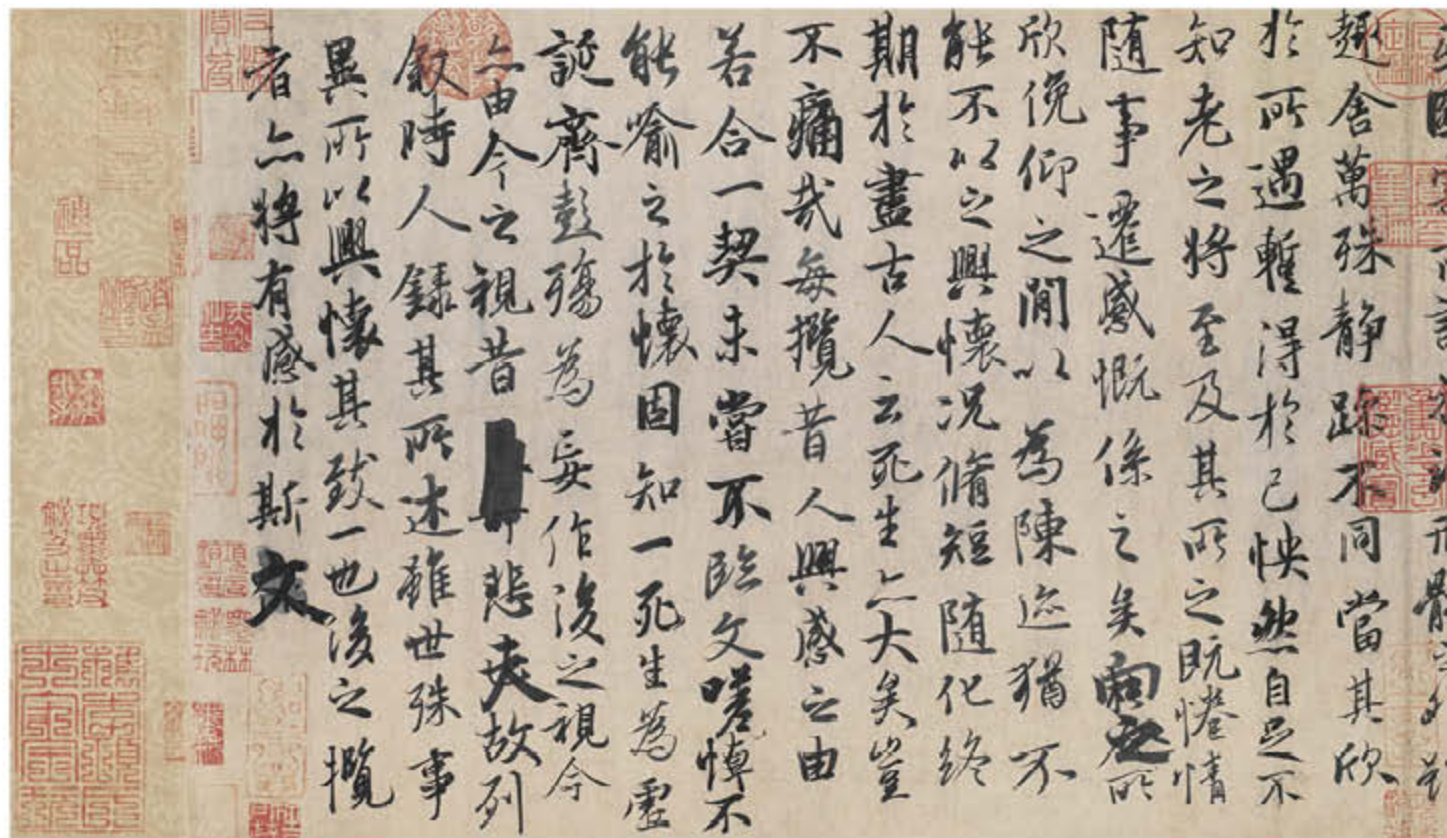 趣舍萬殊静躁不同當其欣
於所遇蹔得於己怏然自足不
知老之將至及其所之既惓情
随事遷感慨係之矣向之所
欣俛仰之閒以為陳迹猶不
能不以之興懷況脩短随化終
期於盡古人云死生亦大矣豈
不痛哉每攬昔人興感之由
若合一契未嘗不臨文嗟悼不
能喻之於懷固知一死生為虛
誕齊彭殤為妄作後之視今
亦由今之視昔悲夫故列
叙時人錄其所述雖世殊事
異所以興懷其致一也後之攬
者亦將有感於斯文
神品